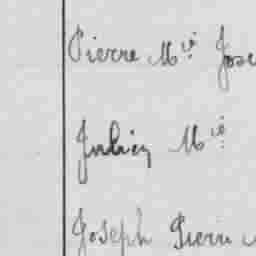 Pierre Mie Jose
Julien Mie
Joseph Pierre M